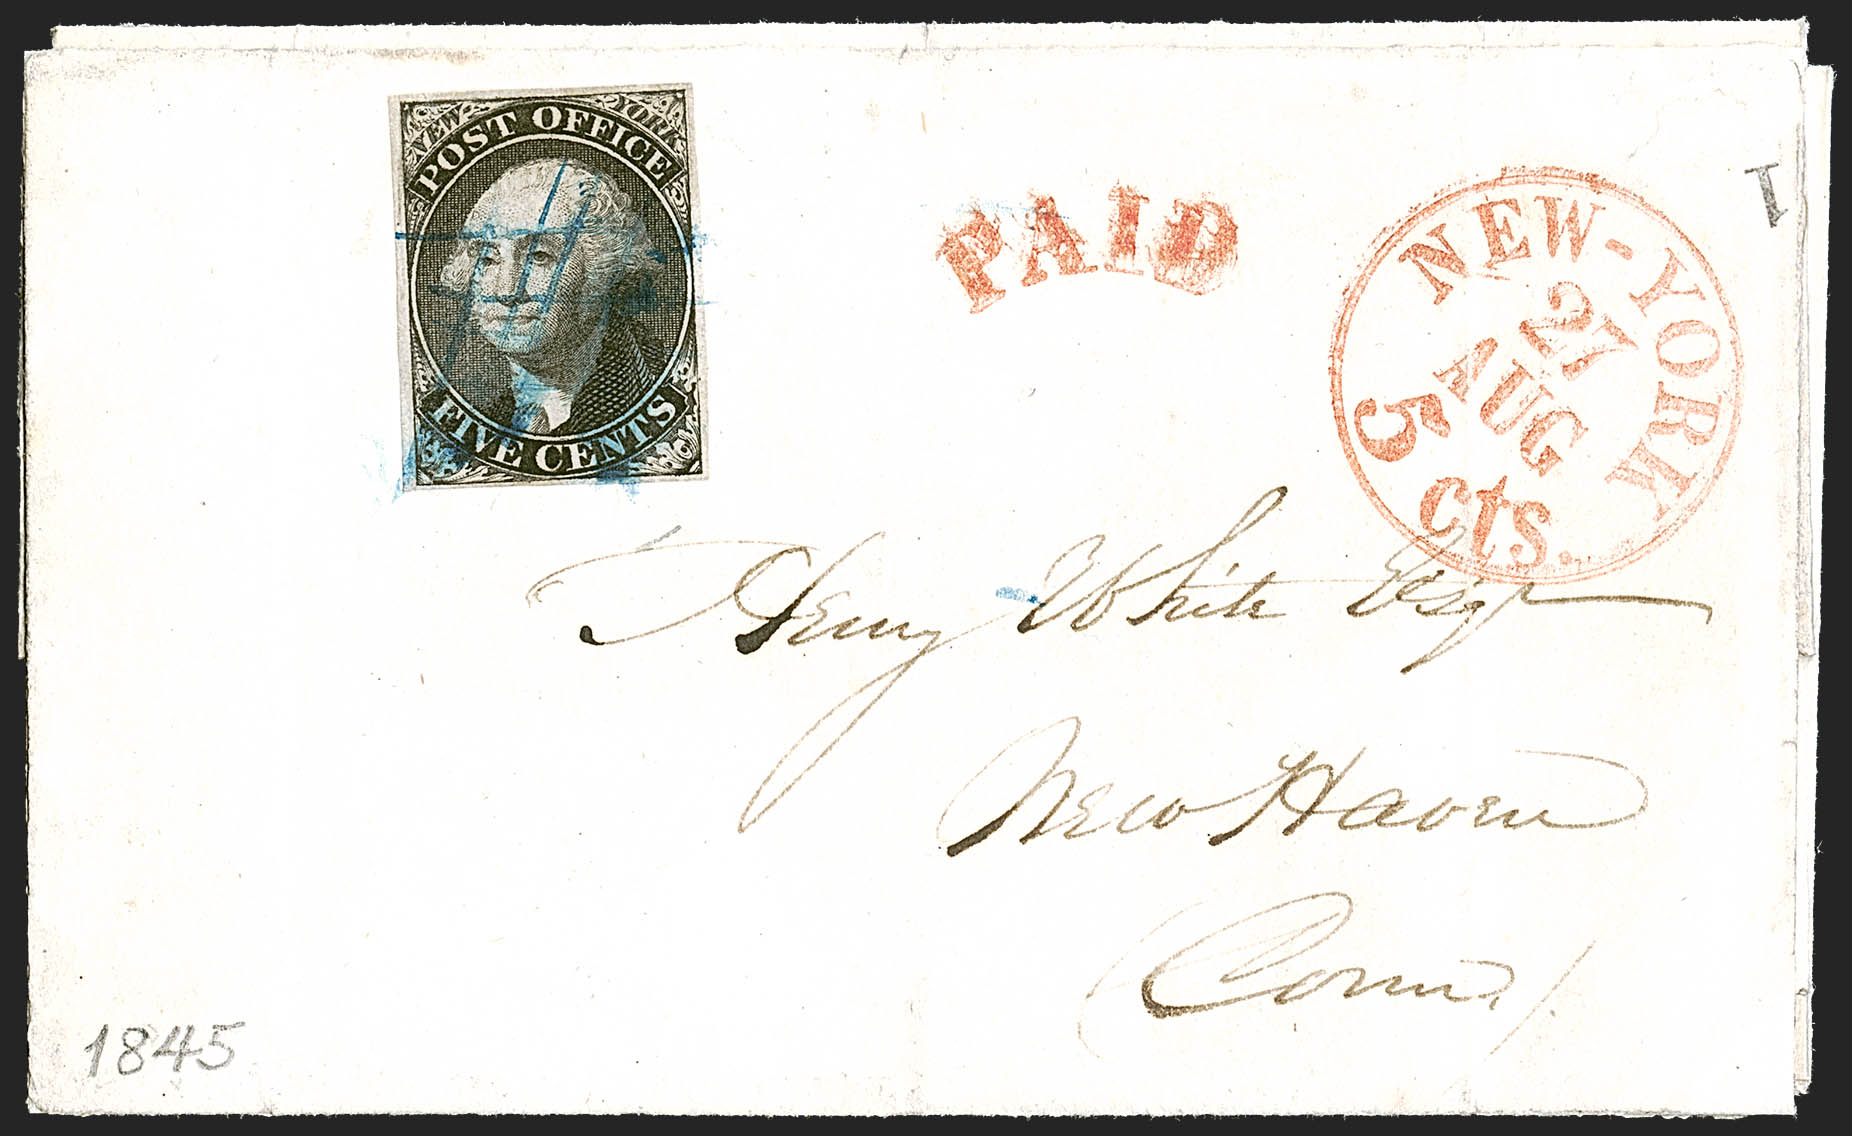 NEW YORK
POST OFFICE
FIVE CENTS
PAID
NEW-YORK
27
AUG
5 cts.
1
Henry White Esqr
New Haven
Conn.
1845